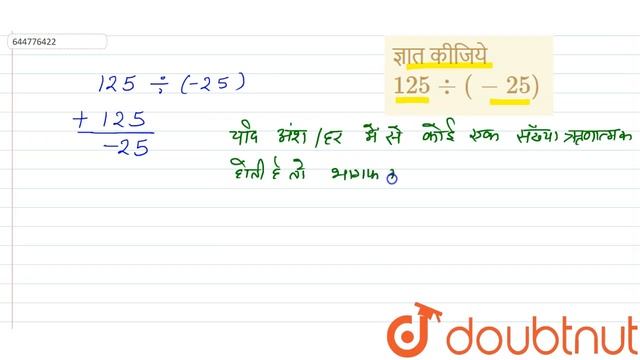 644776422
ज्ञात कीजिये
125 ÷ ( − 25)
125 ÷ (-25)
+ 125
-25
यदि अंश/हर में से कोई एक संख्या ऋणात्मक
होती है तो
doubtnut